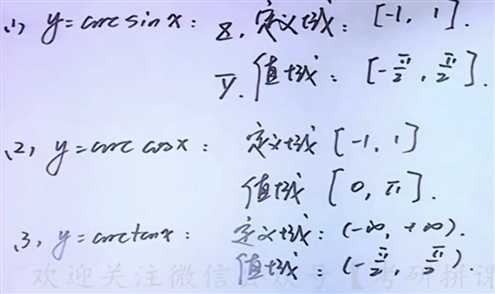 (1) y=arc sin x: x. 定义域: [-1, 1].
y. 值域: [-π/2, π/2].
(2) y=arc cos x: 定义域 [-1, 1]
值域 [0, π].
(3) y=arctan x: 定义域: (-∞, +∞).
值域: (-π/2, π/2).
欢迎关注微信公众号【考研拼课